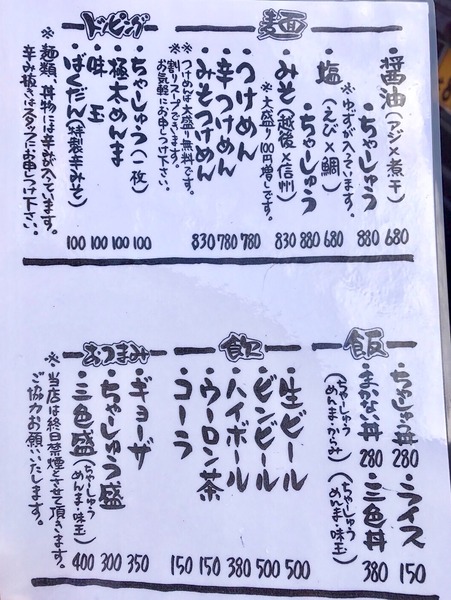 麺
・醤油(アジ×煮干) 680
・ちゃーしゅう 880
※ゆずが入っています。
・塩(えび×鯛) 680
・ちゃーしゅう 880
・みそ(越後×信州) 830
※大盛り100円増しです。
・つけめん 780
・辛つけめん 780
・みそつけめん 830
※つけめんは大盛り無料です。
※割りスープございます。
お気軽にお申しつけ下さい。
トッピング
・ちゃーしゅう(一枚) 100
・極太めんま 100
・味玉 100
・ばくだん(特製辛みそ) 100
※麺類、丼物には辛ねぎ入っています。
辛み抜きはスタッフにお申しつけ下さい。
飯
・ちゃーしゅう丼 280
・ライス 150
・まかない丼 280
(ちゃーしゅう
めんま・からみ)
・三色丼 380
(ちゃーしゅう
めんま・味玉)
飲
・生ビール 500
・ビンビール 500
・ハイボール 380
・ウーロン茶 150
・コーラ 150
おつまみ
・ギョーザ 350
・ちゃーしゅう盛 300
・三色盛(ちゃーしゅう
めんま・味玉) 400
※当店は終日禁煙とさせて頂きます。
ご協力お願いいたします。